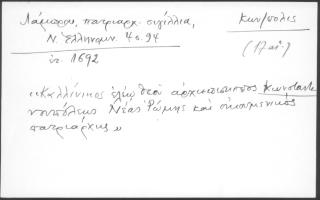 Λάμπρου, πατριαρχ. σιγίλλια,
Κων/πολις
Ν. Ελληνομν. 4ος 94
(17 αἰ.)
ἐτ. 1692
«Καλλίνικος ἐλέῳ θεοῦ ἀρχιεπίσκοπος Κωνσταντι
νουπόλεως Νέας Ῥώμης καὶ οἰκουμενικὸς
πατριάρχης»